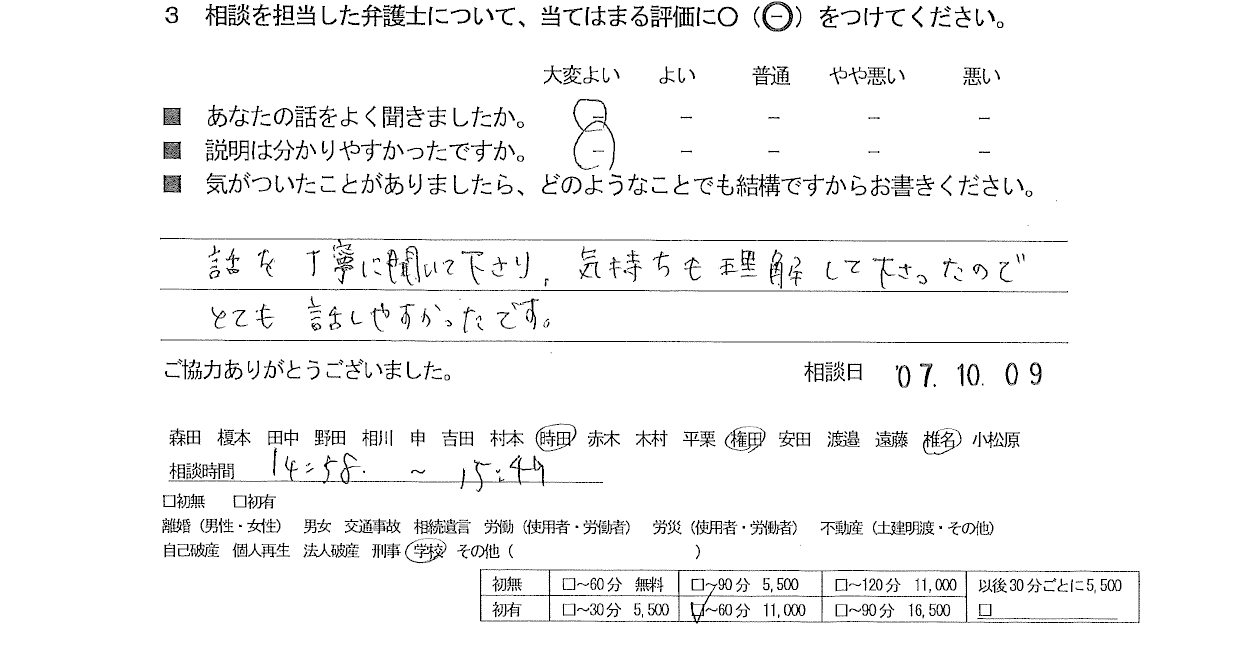 3　相談を担当した弁護士について、当てはまる評価に〇（㊀）をつけてください。
大変よい　よい　普通　やや悪い　悪い
■　あなたの話をよく聞きましたか。　－　－　－　－　－
■　説明は分かりやすかったですか。　－　－　－　－　－
■　気がついたことがありましたら、どのようなことでも結構ですからお書きください。
話を丁寧に聞いて下さり、気持ちも理解して下さったので
とても話しやすかったです。
ご協力ありがとうございました。　相談日　'07.10.09
森田　榎本　田中　野田　相川　申　吉田　村本　時田　赤木　木村　平栗　権田　安田　渡邉　遠藤　椎名　小松原
相談時間　14:58.　～　15:47
□初無　□初有
離婚（男性・女性）　男女　交通事故　相続遺言　労働（使用者・労働者）　労災（使用者・労働者）　不動産（土建明渡・その他）
自己破産　個人再生　法人破産　刑事　学校　その他（　　　）
初無　□～60分　無料　□～90分　5,500　□～120分　11,000　以後30分ごとに5,500
初有　□～30分　5,500　□～60分　11,000　□～90分　16,500　□